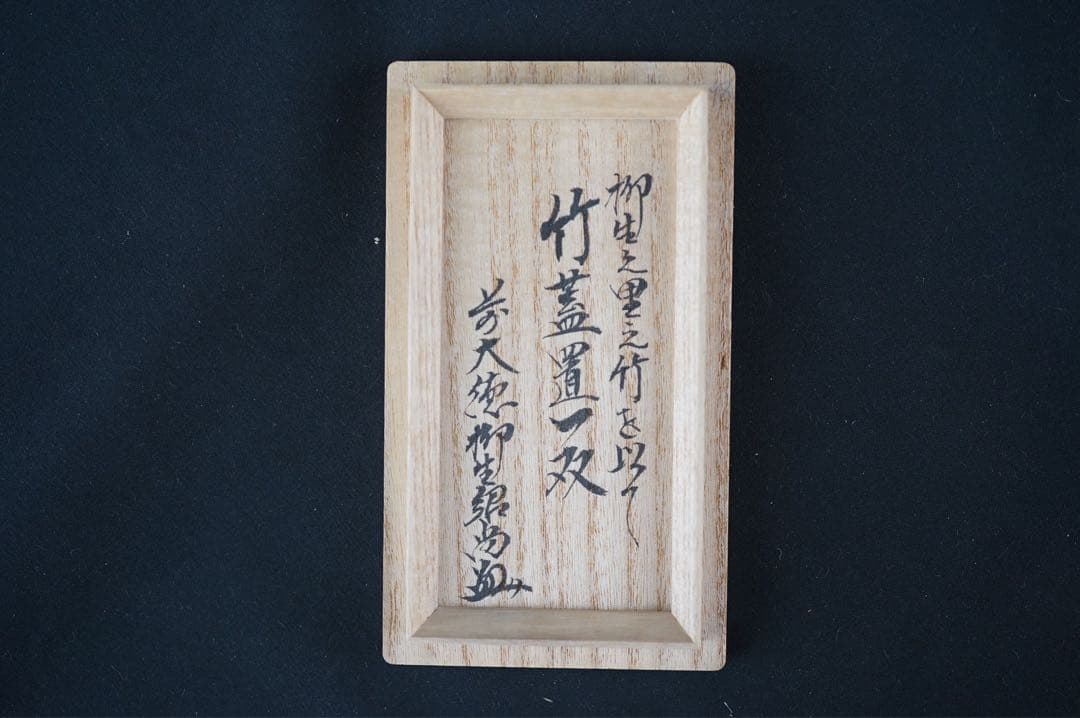 柳生之里之竹を以て
竹蓋置一双
前大徳柳生紹尚